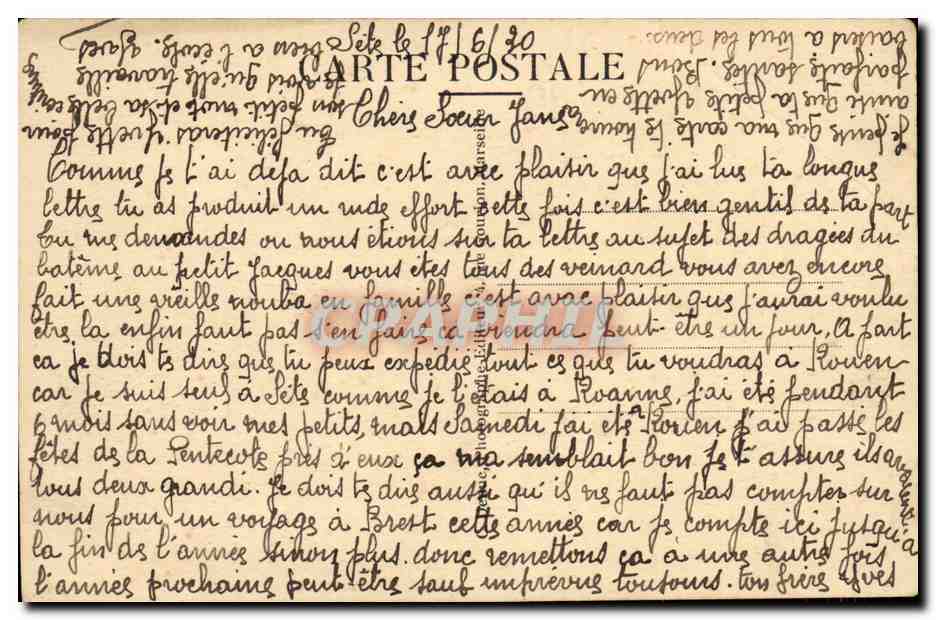 Sète le 17/6/30
CARTE POSTALE
Chère Soeur Jane
Comme je t'ai deja dit c'est avec plaisir que j'ai lue ta longue
lettre tu as produit un rude effort cette fois c'est bien gentil de ta part
tu me demandes ou nous étions sur ta lettre au sujet des dragées du
batême au petit Jacques vous étes tous des veinard vous avez encore
fait une vieille nouba en famille c'est avec plaisir que j'aurai voulu
être la enfin faut pas s'en faire ca viendra peut-être un jour. A part
ca je dois te dire que tu peux expédié tout ce que tu voudras à Rouen
car je suis seul à Sète comme je l'étais à Roanne, j'ai été pendant
6 mois sans voir mes petits, mais Samedi j'ai été a Rouen j'ai passé les
fêtes de la Pentecote près d'eux ça ma semblait bon je t'assure ils
tous deux grandi. Je dois te dire aussi qu'il ne faut pas compter sur
nous pour un voyage à Brest cette année car je compte ici jusqu'a
la fin de l'année sinon plus. donc remettons ça à une autre fois
l'année prochaine peut-être sauf imprévue toujours. ton frère Yves
Tu féliciteras Yvette pour
son petit mot et sa belle
je vois qu'elle travaille
bien a l'école.
Je pense que ma carte te trouve
ainsi que la petite Yvette en
parfaite santée. Bons
baisers a tous les deux.
CRAPHIL
Marseille